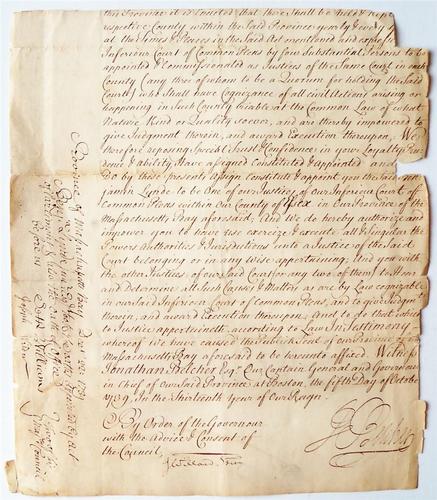 this Province it is Enacted that there Shall be held & kept
respective County within the Said Province yearly & every
at the Times & Places in the Said Act mentioned and expressed
Inferiour Court of Common Pleas by four Substantial Persons to be
appointed & Commissionated as Justices of the Same Court in each
County (any three of whom to be a Quorum for holding the Said
Court) who Shall have Cognizance of all civil Actions arising or
happening in Such County triable at the Common Law of what
Nature Kind or Quality soever, and are thereby impowered to
give Judgment therein, and award Execution thereupon. We
therefore reposing Special Trust & Confidence in your Loyalty Pru
dence & Ability Have assigned Constituted & appointed and
Do by these presents assign constitute & appoint you the Said Ben
jamin Lynde to be One of our Justices of our Inferiour Court of
Common Pleas within our County of Essex in our Province of the
Massachusetts Bay aforesaid; And We do hereby authorize and
impower you to have use exercise & execute all & Singular the
Powers Authorities & Jurisdictions unto a Justice of the Said
Court belonging or in any wise appertaining. And you with
the other Justices of our Said Court (or any two of them) to Hear
and Determine all Such Causes & Matters as are by Law cognizable
in our Said Inferiour Court of Common Pleas, and to give Judgmt
therein, and award Execution thereupon. And to do that which
to Justice appertaineth according to Law. In Testimony
whereof We have caused the Publick Seal of our Province of the
Massachusetts Bay aforesaid to be hereunto affixed. Witness
Jonathan Belcher Esqr Our Captain General and Governour
in Chief of our Said Province at Boston, the fifth Day of October
1739. In the Thirteenth Year of Our Reign.
J Belcher
By Order of the Governour
with the Advice & Consent of
the Council,
J Willard Secry
Province of Massachusetts Bay
1739